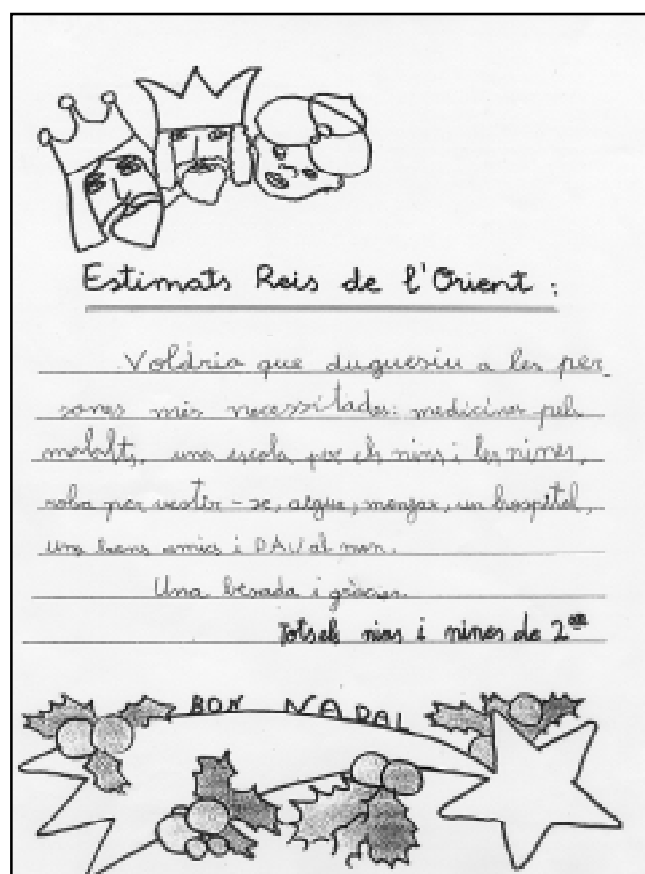 Estimats Reis de l'Orient :
Voldria que duguesiu a les per
sones més necessitades: medicines pels
malalts, una escola per els nins i les nines,
roba per vestir-se, aigua, menjar, un hospital,
uns bons amics i PAU al mon.
Una besada i gràcies.
Tots els nins i nines de 2on
BON NADAL